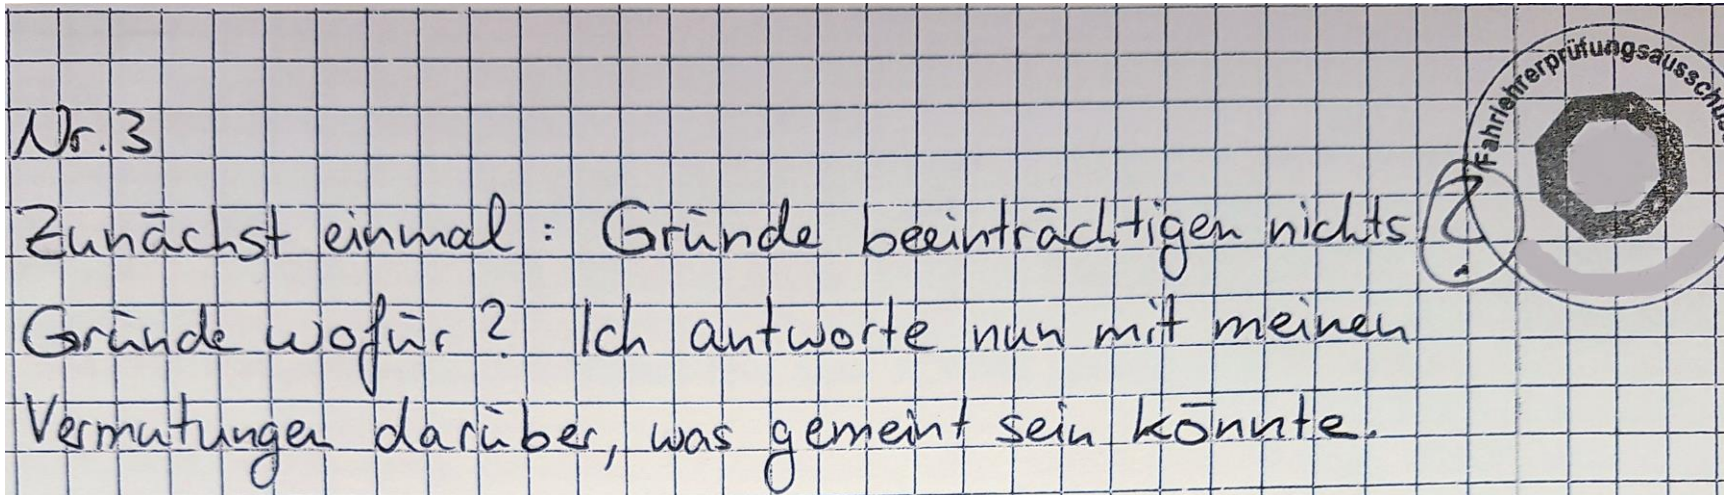 Fahrlehrerprüfungsaussch
Nr. 3
Zunächst einmal : Gründe beeinträchtigen nichts ?
Gründe wofür ? Ich antworte nun mit meinen
Vermutungen darüber, was gemeint sein könnte.